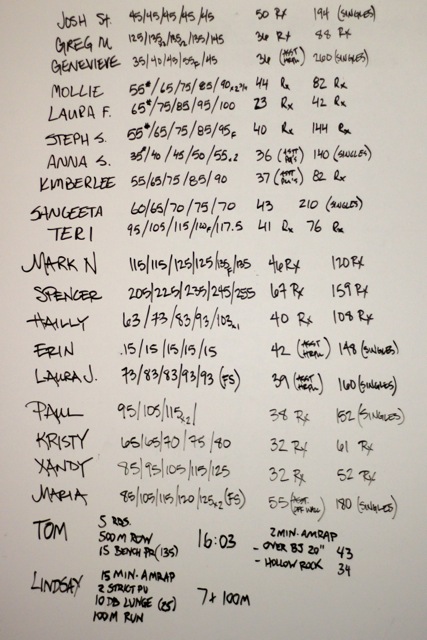 JOSH St. 45/45/45/45/45 50 Rx 194 (SINGLES)
GREG M 125/135/155/145 36 Rx 88 Rx
GENEVIEVE 35/40/45/55F/45 36 260 (SINGLES)
MOLLIE 55#/65/75/85/90 44 Rx 82 Rx
LAURA F. 65#/75/85/95/100 23 Rx 42 Rx
STEPH S. 55#/65/75/85/95F 40 Rx 144 Rx
ANNA S. 35#/40/45/50/55x2 36 (ASST PU'S) 140 (SINGLES)
KIMBERLEE 55/65/75/85/90 37 (ASST PU'S) 82 Rx
SANGEETA 60/65/70/75/70 43 210 (SINGLES)
TERI 95/105/115/120F/117.5 41 Rx 76 Rx
MARK N 115/115/125/125/135F/135 46 Rx 120 Rx
SPENCER 205/225/235/245/255 67 Rx 159 Rx
HAILLY 63/73/83/93/103x1 40 Rx 108 Rx
ERIN 15/15/15/15/15 42 (ASST HRPU) 148 (SINGLES)
LAURA J. 73/83/83/93/93 (FS) 39 (ASST HRPU) 160 (SINGLES)
PAUL 95/105/115x2/ 38 Rx 152 (SINGLES)
KRISTY 65/65/70/75/80 32 Rx 61 Rx
XANDY 85/95/105/115/125 32 Rx 52 Rx
MARIA 85/105/115/120/125x2 (FS) 55 (ASST OFF WALL) 180 (SINGLES)
TOM 5 RDS. 16:03 2 MIN. AMRAP
500M ROW - OVER BJ 20" 43
15 BENCH PR (135) - HOLLOW ROCK 34
LINDSAY 15 MIN. AMRAP 7 + 100M
2 STRICT PU
10 DB LUNGE (25)
100M RUN